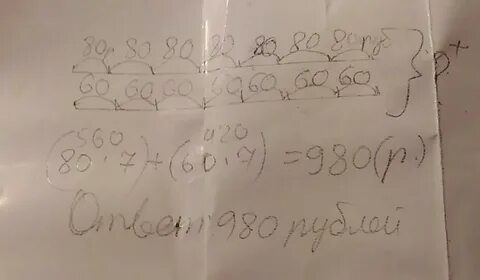 80р 80 80 80 80 80 80руб
60 60 60 60 60 60 60 } ?+
560 420
(80·7)+(60·7)=980(р.)
Ответ: 980 рублей